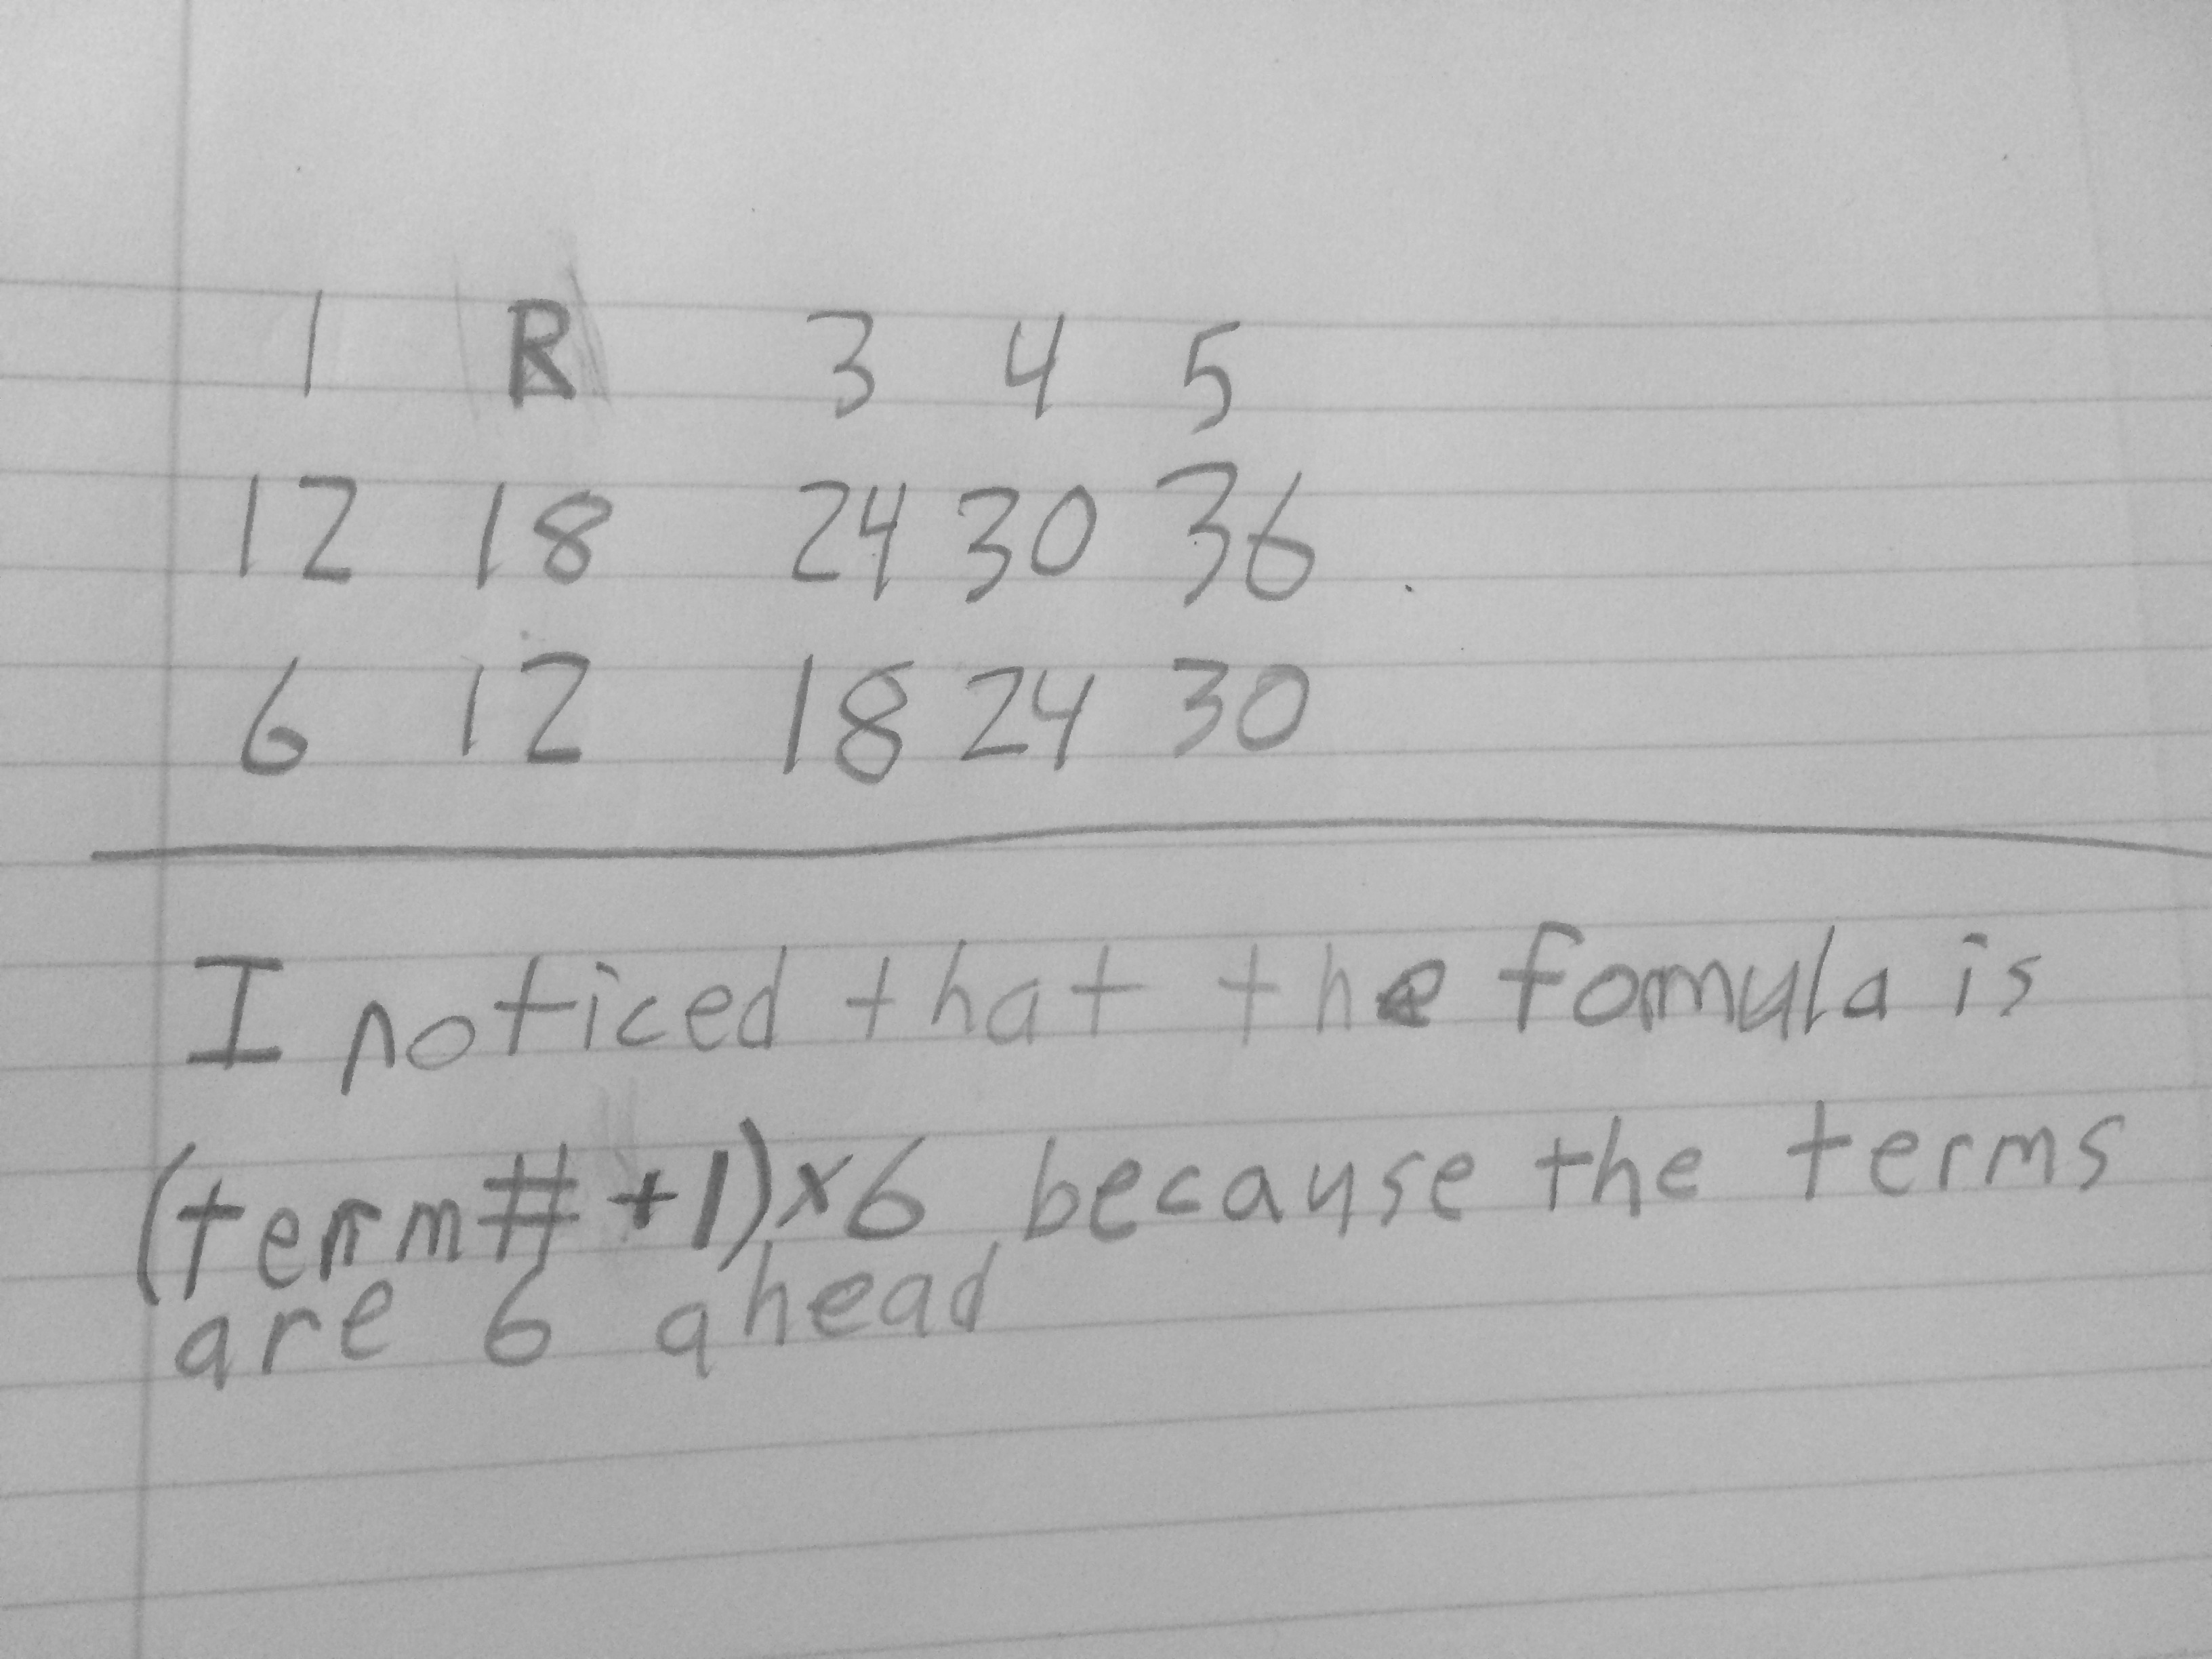 1 R 3 4 5
12 18 24 30 36
6 12 18 24 30
I noticed that the fomula is
(term# +1)×6 because the terms
are 6 ahead